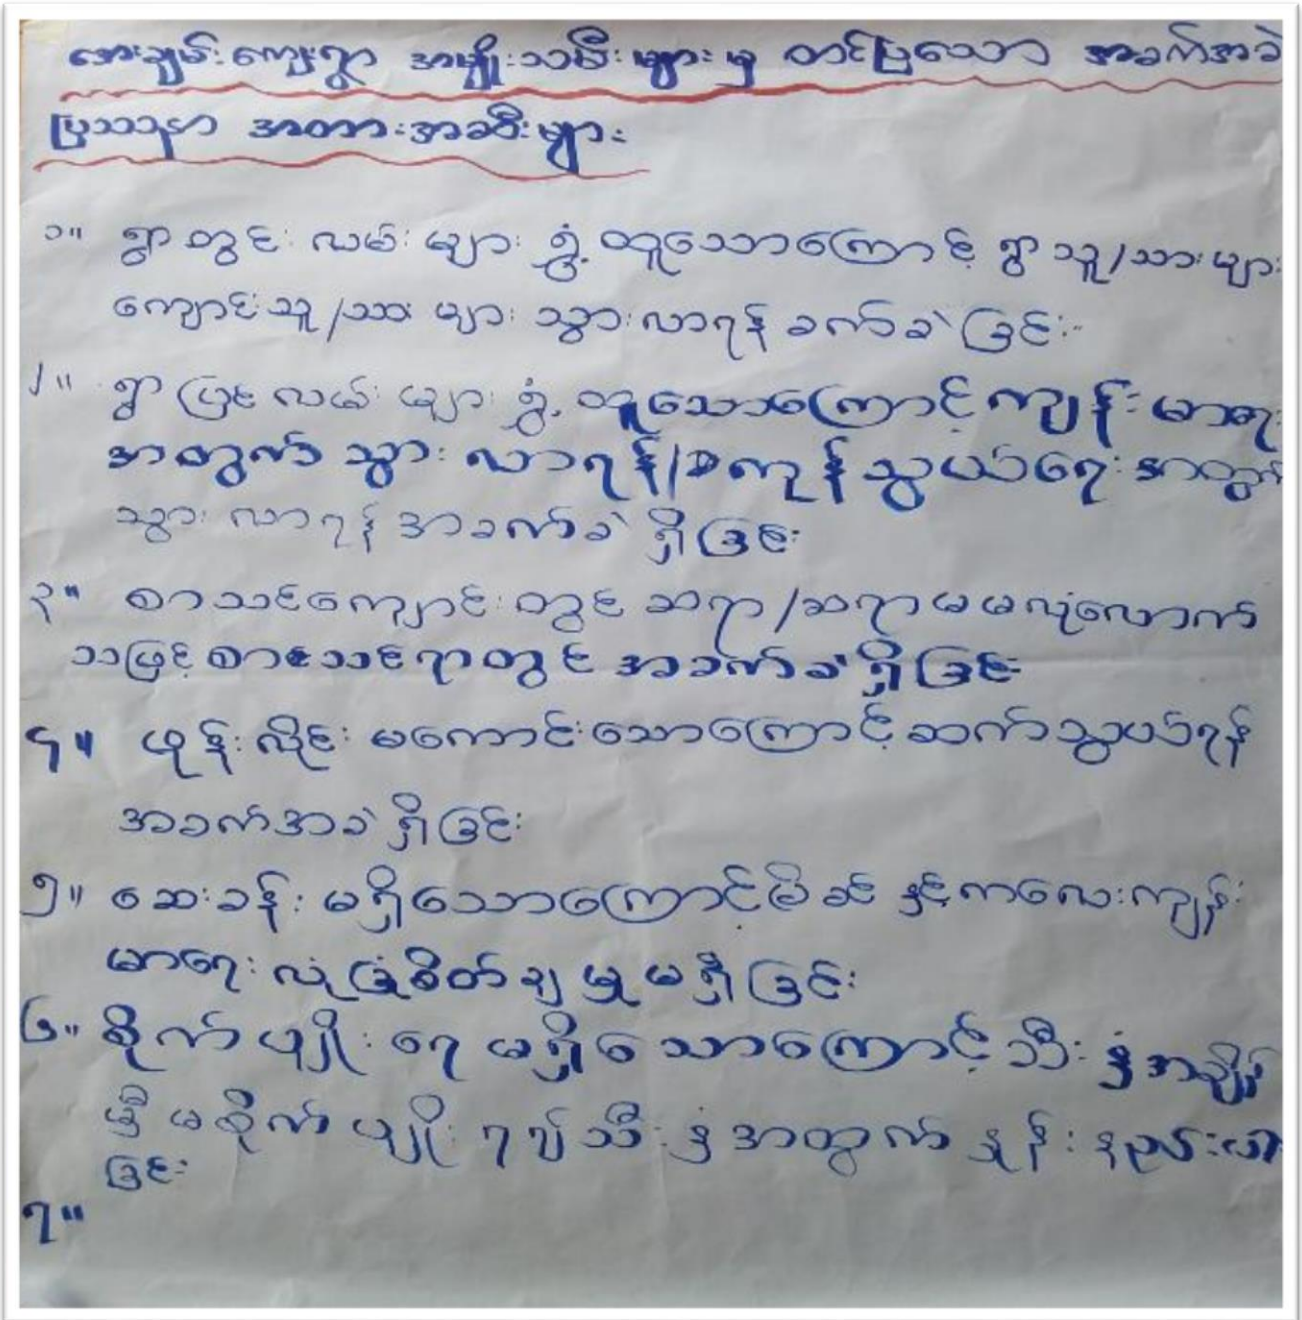 အေးချမ်းကျေးရွာ အမျိုးသမီးများမှ တင်ပြသော အခက်အခဲ
ပြဿနာ အတားအဆီးများ
၁။ ရွာတွင်းလမ်းများ ရွှံ့ထူသောကြောင့် ရွာသူ/သားများ
ကျောင်းသူ/သားများ သွားလာရန် ခက်ခဲခြင်း
၂။ ရွာပြင်လမ်းများ ရွှံ့ထူသောကြောင့် ကျန်းမာရေး
အတွက် သွားလာရန်/ကုန်သွယ်ရေးအတွက်
သွားလာရန် အခက်ခဲရှိခြင်း
၃။ စာသင်ကျောင်းတွင် ဆရာ/ဆရာမ မလုံလောက်
သဖြင့် စာသင်ရာတွင် အခက်ခဲရှိခြင်း
၄။ ဖုန်းလိုင်းမကောင်းသောကြောင့် ဆက်သွယ်ရန်
အခက်အခဲရှိခြင်း
၅။ ဆေးခန်းမရှိသောကြောင့် မိခင်နှင့်ကလေးကျန်း
မာရေး လုံခြုံစိတ်ချမှုမရှိခြင်း
၆။ စိုက်ပျိုးရေမရှိသောကြောင့် သီးနှံအချိန်
မှီမစိုက်ပျိုးရ၍ သီးနှံအထွက်နှုန်းနည်းပါး
ခြင်း
၇။